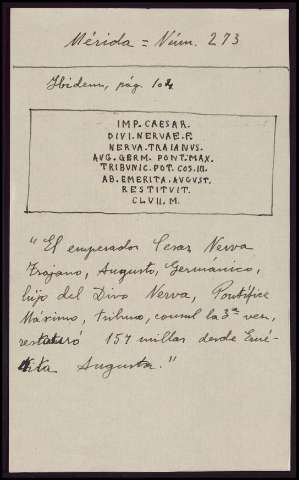 Mérida = Núm. 273
Ibidem, pág. 104
IMP. CAESAR.
DIVI. NERVAE. F.
NERVA. TRAIANUS.
AUG. GERM. PONT. MAX.
TRIBUNIC. POT. COS. III.
AB. EMERITA. AUGUST.
RESTITVIT.
CLVII. M.
"El emperador Cesar Nerva
Trajano, Augusto, Germánico,
hijo del Divo Nerva, Pontífice
Máximo, tribuno, consul la 3ª vez,
restauró 157 millas desde Emé-
rita Augusta."